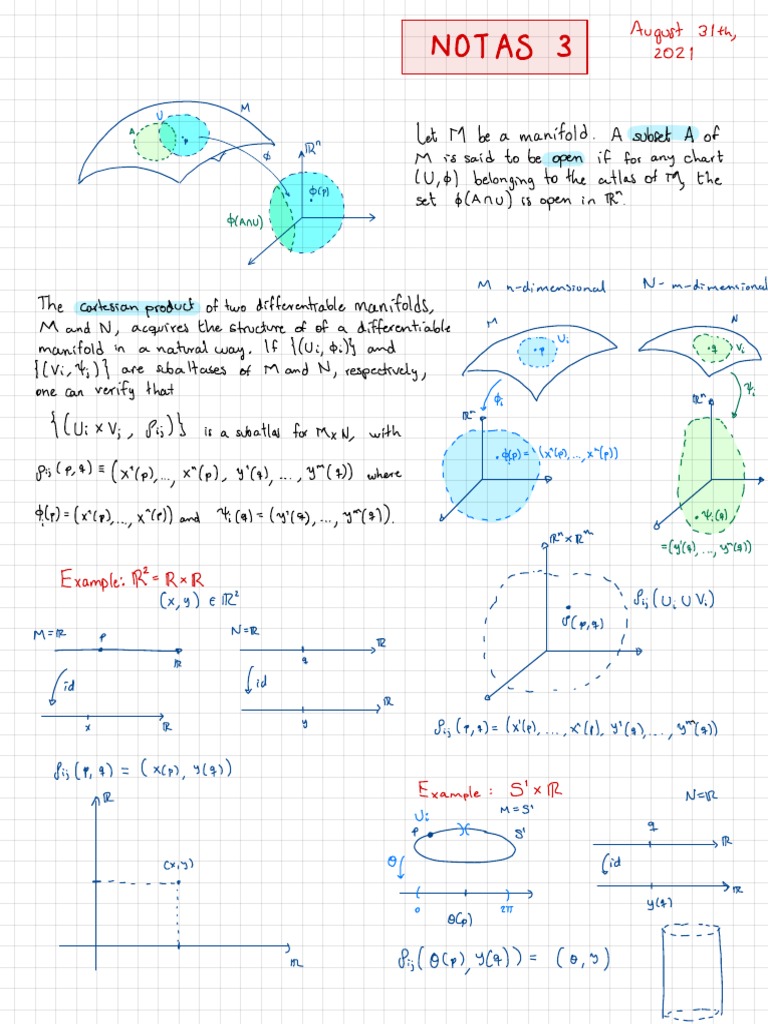 NOTAS 3
August 31th,
2021
M
U
A
p
ϕ
ℝⁿ
ϕ(p)
ϕ(A∩U)
Let M be a manifold. A subset A of
M is said to be open if for any chart
(U,ϕ) belonging to the atlas of M, the
set ϕ(A∩U) is open in ℝⁿ.
The cartesian product of two differentiable manifolds,
M and N, acquires the structure of of a differentiable
manifold in a natural way. If {(Ui, ϕi)} and
{(Vi, Ψi)} are subaltases of M and N, respectively,
one can verify that
{(Ui × Vj, ρij)} is a subatlas for M×N, with
ρij(p,q) ≡ (x¹(p),..., xⁿ(p), y¹(q), ..., yᵐ(q)) where
ϕi(p) = (x¹(p),..., xⁿ(p)) and Ψi(q) = (y¹(q), ..., yᵐ(q)).
M n-dimensional
N- m-dimensional
M
Ui
p
ϕi
ℝⁿ
ϕi(p) = (x¹(p),..., xⁿ(p))
N
q
Vi
Ψi
ℝⁿ
Ψi(q)
= (y¹(q), ..., yᵐ(q))
ℝⁿ × ℝᵐ
ρij(Ui ∪ Vi)
(p,q)
ρij(p,q) = (x¹(p), ..., xⁿ(p), y¹(q), ..., yᵐ(q))
Example: ℝ² = ℝ × ℝ
(x,y) ∈ ℝ²
M=ℝ
p
ℝ
id
x
ℝ
N=ℝ
q
ℝ
id
y
ℝ
ρij(p,q) = (x(p), y(q))
ℝ
(x,y)
ℝ
Example: S¹ × ℝ
M = S¹
Ui
p
S¹
θ
0
2π
θ(p)
N=ℝ
q
ℝ
id
y(q)
ℝ
ρij(θ(p), y(q)) = (θ, y)